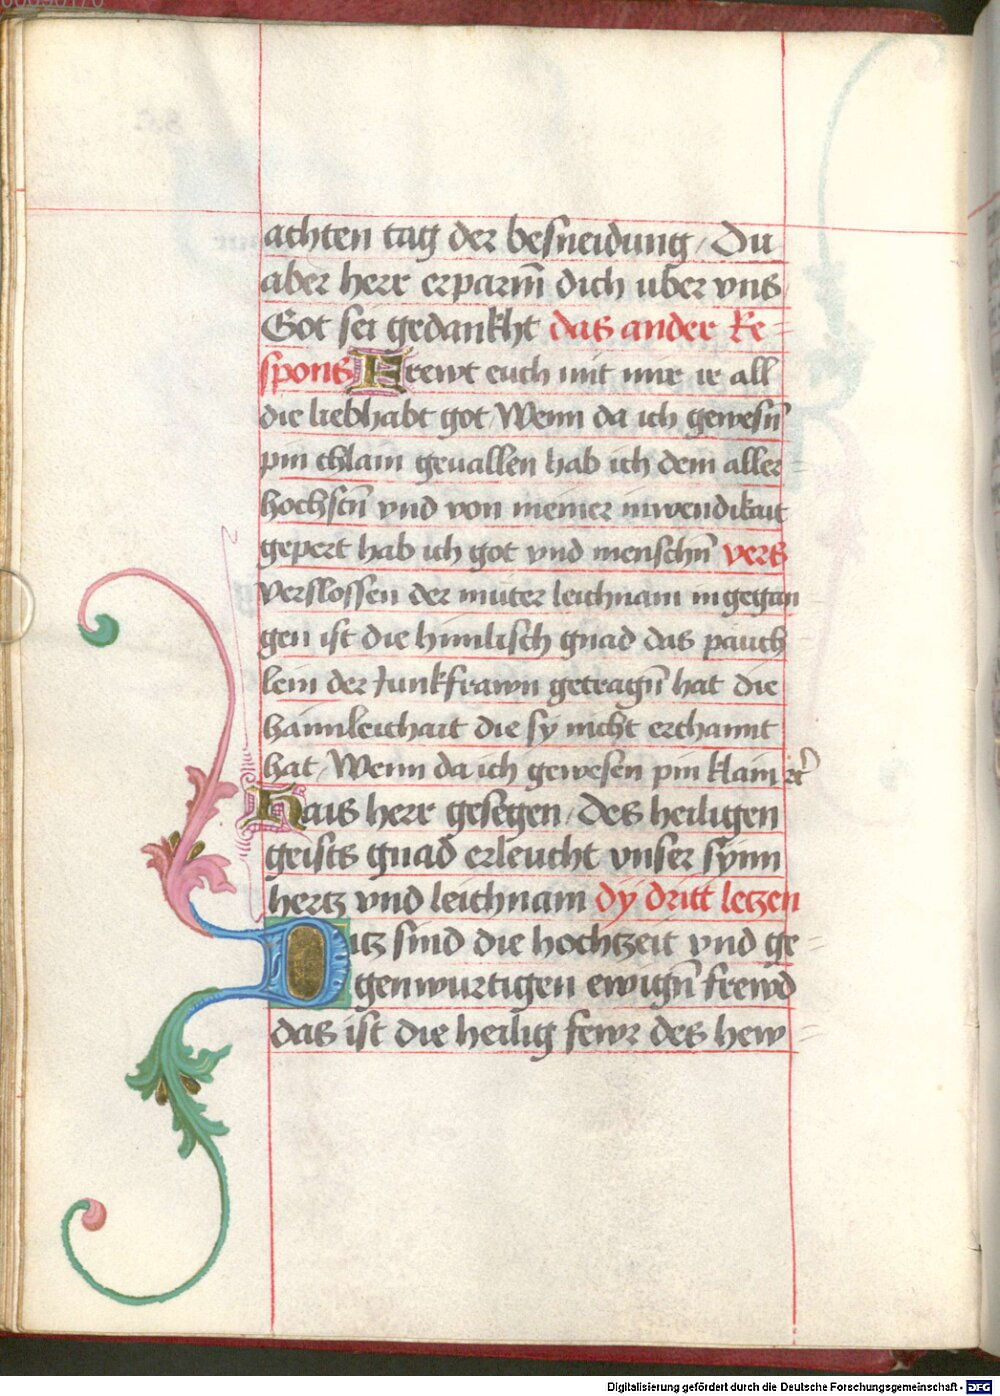 achten tag der besneidung / Du
aber herr erparm̄ dich uber vns
Got sei gedankht das ander Re=
spons Frewt euch mit mir ir all
die liebhabt got / Wenn da ich gewesn̄
pin chlain geuallen hab ich dem aller=
hochstn̄ vnd von meiner inwendikait
gepert hab ich got vnd menschn̄ vers
Verslossen der muter leichnam ingegan
gen ist die himlisch gnad das päuch=
lein der Junkfrawn getragn̄ hat die
haimleichait die sy nicht erchannt
hat / Wenn da ich gewesen pin klain ꝛc
Haus herr gesegen / des heiligen
geists gnad erleucht vnser synn
hertz vnd leichnam dy dritt letzen
Ditz sind die hochtzeit vnd ge=
genwurtigen ewign̄ frewd
das ist die heilig fewr des hew=
Digitalisierung gefördert durch die Deutsche Forschungsgemeinschaft - DFG